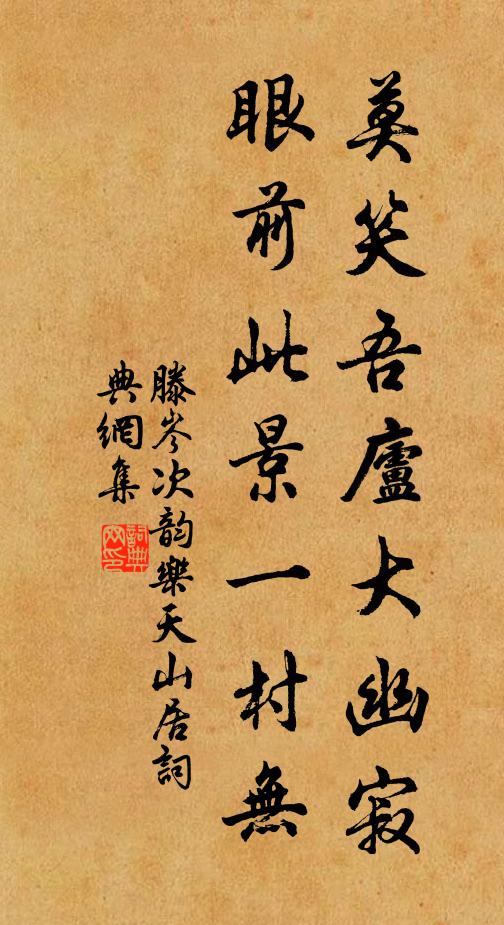 莫笑吾廬大幽寂
眼前此景一村無
滕岑次韵樂天山居詞
典網集
詞典
网印